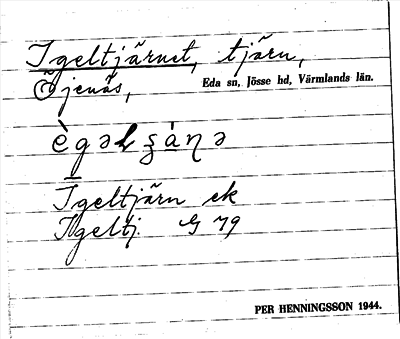 Igeltjärnet, tjärn,
Öjenäs, Eda sn, Jösse hd, Värmlands län.
Igeltjärn ek
Igeltj. G 79
PER HENNINGSSON 1944.